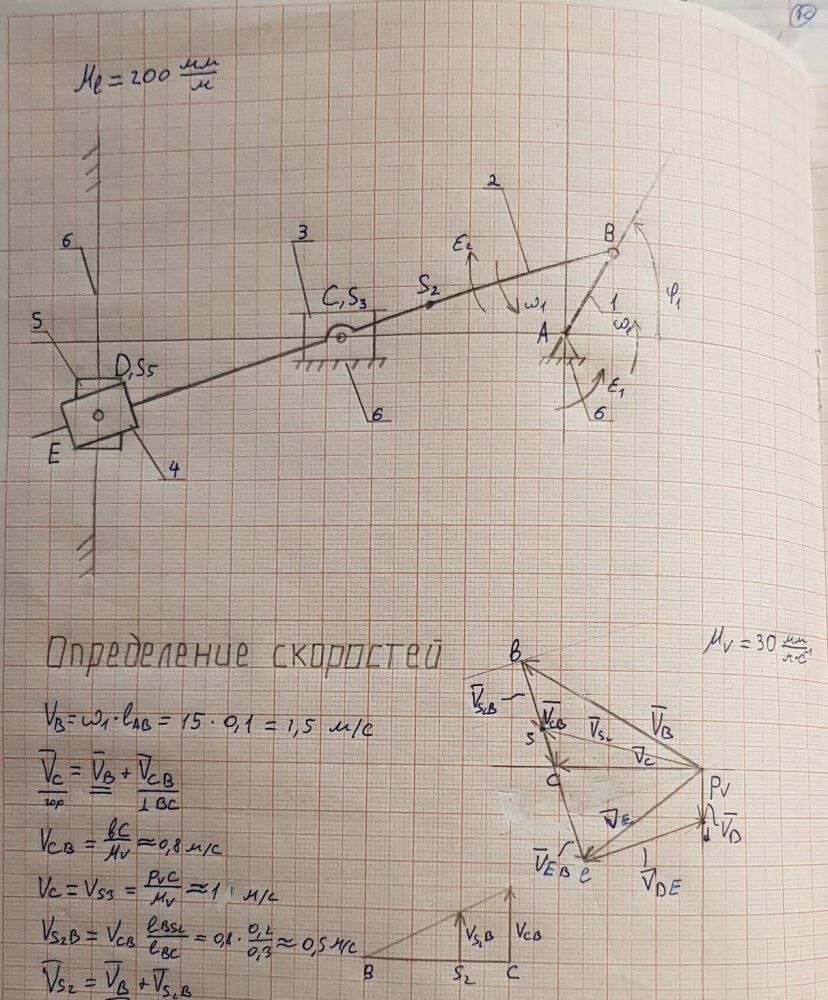 10
Mℓ = 200 мм/м
2
3
6
B
ε₂
C,S₃
S₂
ω₁
1
φ₁
5
A
ω₁
D,S₅
ε₁
6
6
E
4
Определение скоростей
Mᵥ = 30 мм/м·с⁻¹
V_B = ω₁·ℓ_AB = 15 · 0,1 = 1,5 м/с
V̅_C = V̅_B + V̅_CB
гор ⊥ BC
V_CB = вc/Mv ≈ 0,8 м/с
V_C = V_S3 = PvC/Mv ≈ 1 м/с
V_S₂B = V_CB ℓ_BS₂/ℓ_BC = 0,8 · 0,2/0,3 ≈ 0,5 м/с
V̅_S₂ = V̅_B + V̅_S₂B
B
V̅_S₂B
V̅_CB
V̅_S₂
V̅_B
S
V̅_C
C
Pv
V̅_E
V̅_D
V̅_EB
e
V̅_DE
V_S₂B
V_CB
B
S₂
C